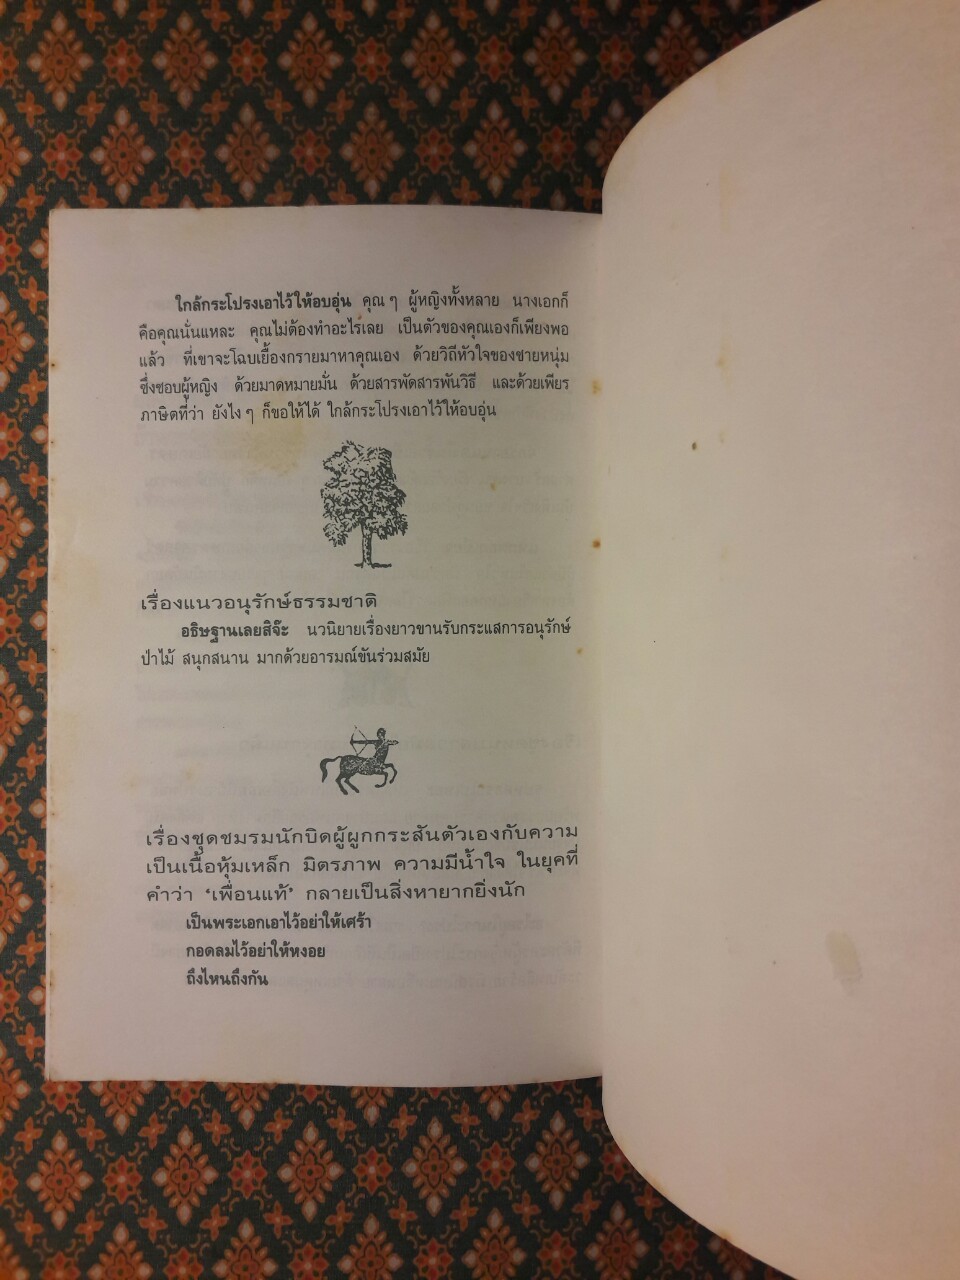 ใกล้กระโปรงเอาไว้ให้อบอุ่น คุณ ๆ ผู้หญิงทั้งหลาย นางเอกก็
คือคุณนั่นแหละ คุณไม่ต้องทำอะไรเลย เป็นตัวของคุณเองก็เพียงพอ
แล้ว ที่เขาจะโฉบเยื้องกรายมาหาคุณเอง ด้วยวิถีหัวใจของชายหนุ่ม
ซึ่งชอบผู้หญิง ด้วยมาดหมายมั่น ด้วยสารพัดสารพันวิธี และด้วยเพียร
ภาษิตที่ว่า ยังไง ๆ ก็ขอให้ได้ ใกล้กระโปรงเอาไว้ให้อบอุ่น
เรื่องแนวอนุรักษ์ธรรมชาติ
อธิษฐานเลยสิจ๊ะ นวนิยายเรื่องยาวขานรับกระแสการอนุรักษ์
ป่าไม้ สนุกสนาน มากด้วยอารมณ์ขันร่วมสมัย
เรื่องชุดชมรมนักบิดผู้ผูกกระสันตัวเองกับความ
เป็นเนื้อหุ้มเหล็ก มิตรภาพ ความมีน้ำใจ ในยุคที่
คำว่า ‘เพื่อนแท้’ กลายเป็นสิ่งหายากยิ่งนัก
เป็นพระเอกเอาไว้อย่าให้เศร้า
กอดลมไว้อย่าให้หงอย
ถึงไหนถึงกัน